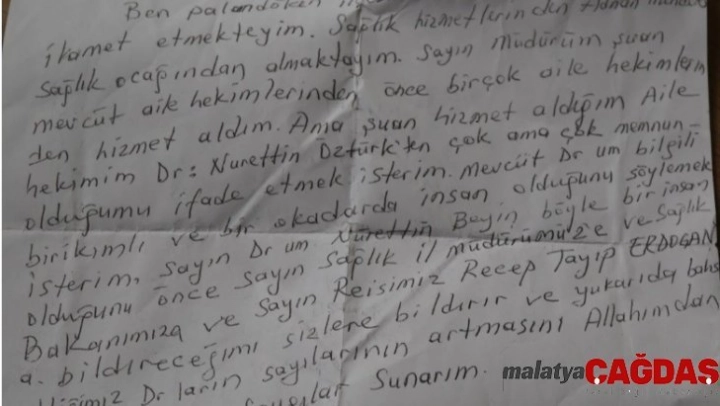 Ben palandöken
ikamet etmekteyim. Sağlık hizmetlerinden
Sağlık ocağından almaktayım. Sayın Müdürüm şuan
mevcüt aile hekimlerinden önce birçok aile hekimlerin
den hizmet aldım. Ama şuan hizmet aldığım Aile
hekimim Dr: Nurettin Öztürk'ten çok ama çok memnun-
olduğumu ifade etmek isterim. Mevcüt Dr um bilgili
birikimli ve bir okadarda insan olduğunu söylemek
isterim. Sayın Dr um Nürettin Beyin böyle bir insan
olduğunu önce Sayın Sağlık il Müdürümüze ve Sağlık
Bakanımıza ve Sayın Reisimiz Recep Tayıp ERDOĞAN
a. bildireceğimi sizlere bildirir ve yukarıda bahs
Dr ların sayılarının artmasını Allahımdan
Sunarım.
malatya ÇAĞDAŞ